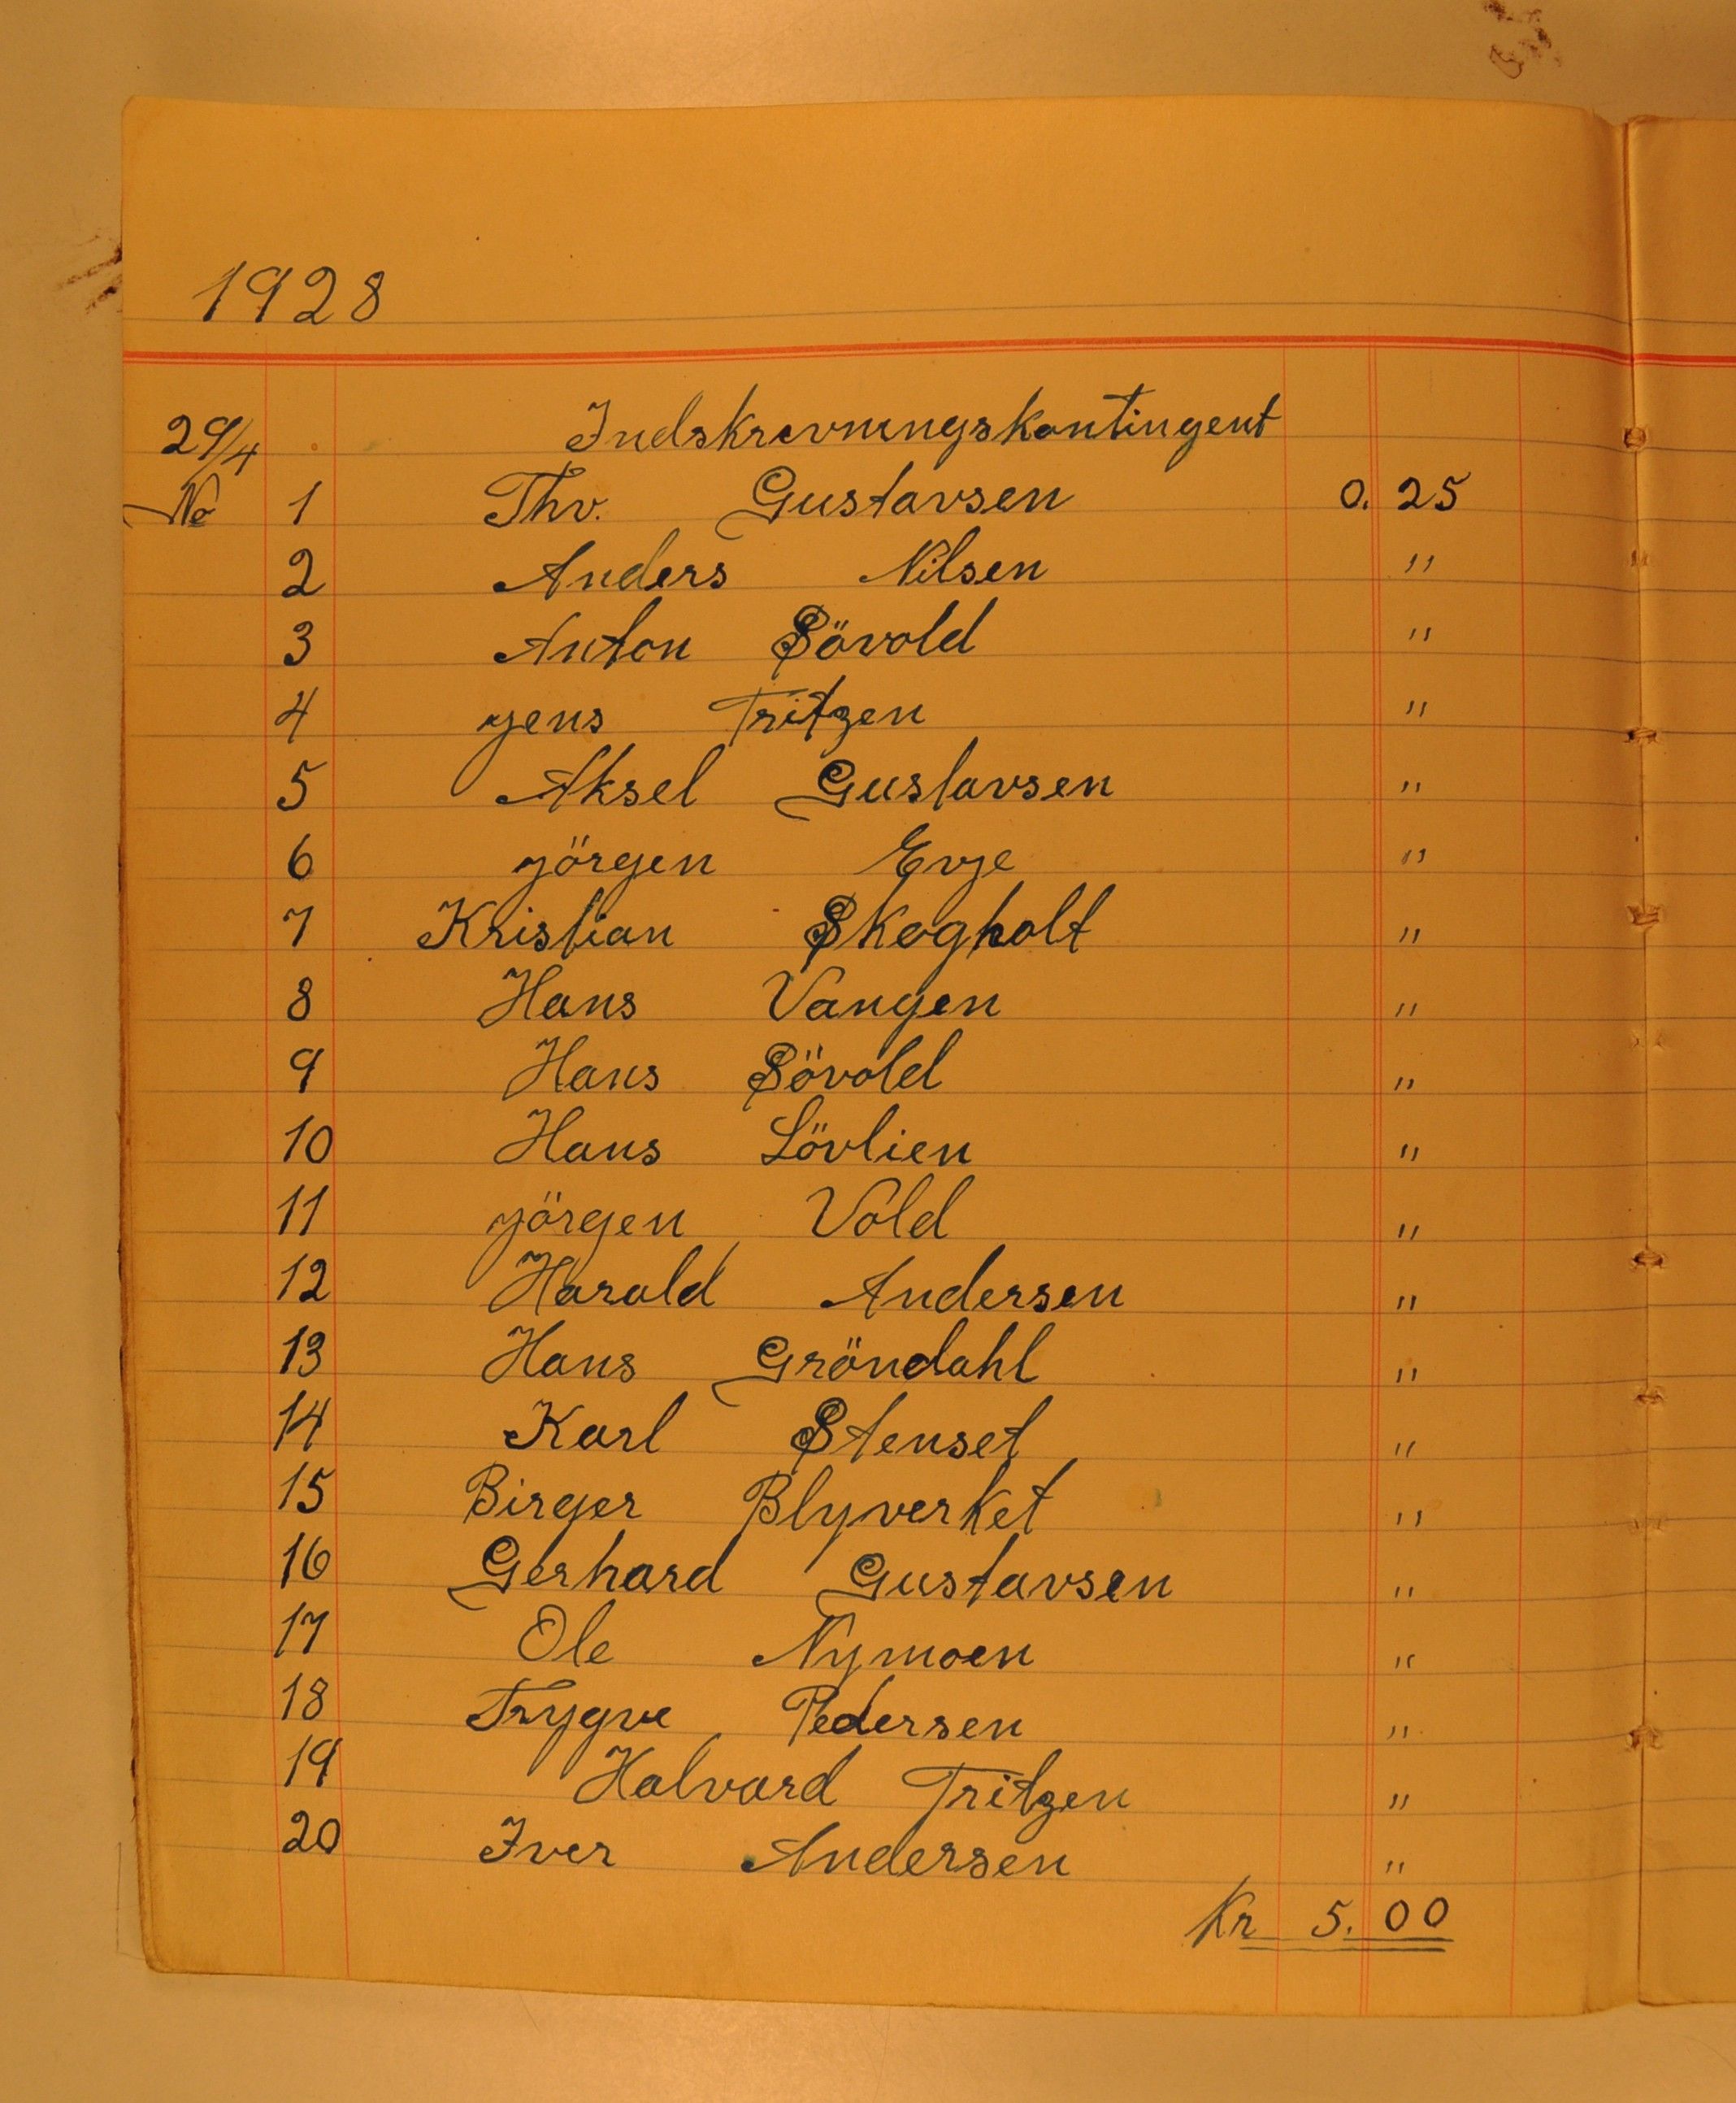 1928
29/4 Indskrivningskontingent
No 1 Thv. Gustavsen 0. 25
2 Anders Nilsen "
3 Anton Sövold "
4 Jens Tritzen "
5 Aksel Gustavsen "
6 Jörgen Evje "
7 Kristian Skogholt "
8 Hans Vangen "
9 Hans Sövold "
10 Hans Lövlien "
11 Jörgen Vold "
12 Harald Andersen "
13 Hans Gröndahl "
14 Karl Stenset "
15 Birger Blyverket "
16 Gerhard Gustavsen "
17 Ole Nymoen "
18 Trygve Pedersen "
19 Halvard Tritzen "
20 Iver Andersen "
Kr 5. 00